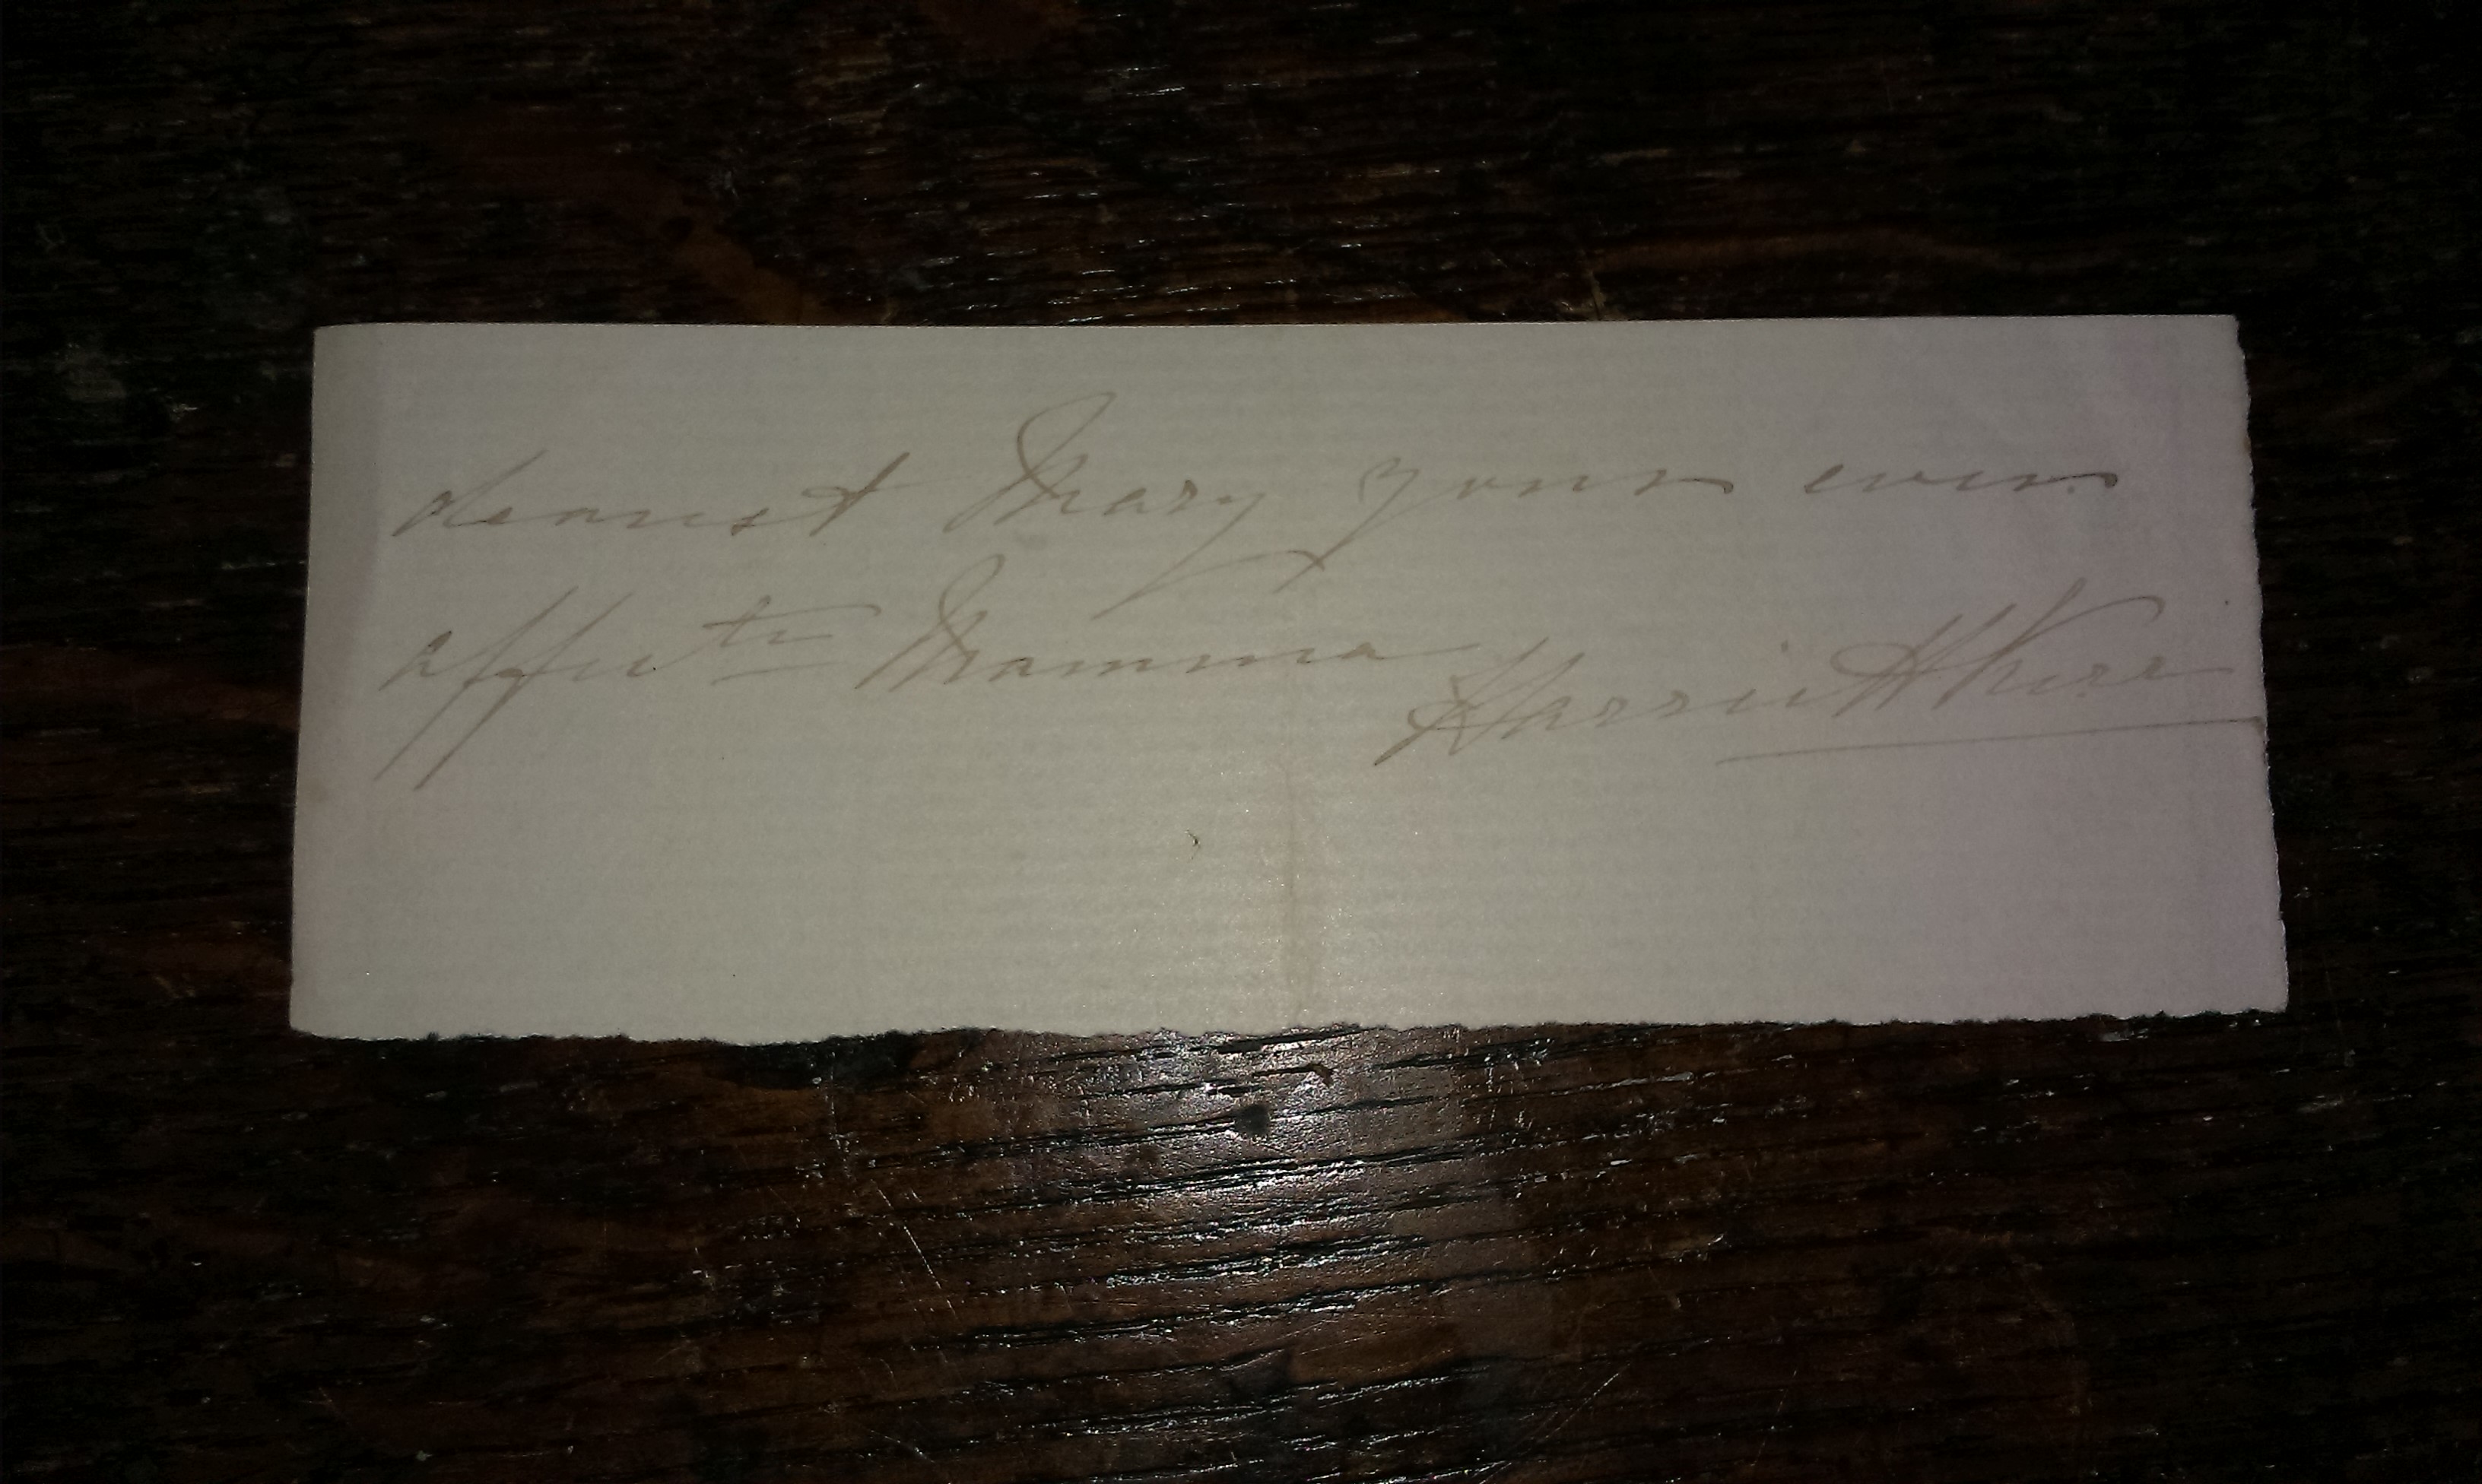 dearest Mary yours ever
affecte Mamma
Harriet Kerr